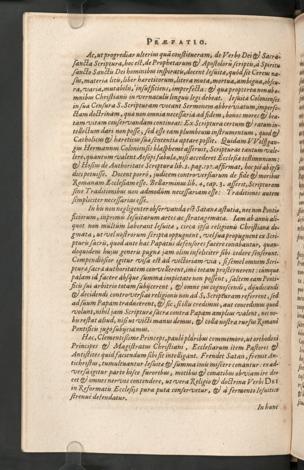 PRÆFATIO.
Ac, ut progrediar ulterius quàm constitueram, de Verbo Dei & Sacro-
sancta Scriptura, hoc est, de Prophetarum & Apostolorum scriptis, à Spiritu
sancto Sanctis Dei hominibus inspiratis, docent Iesuitæ, quòd sit Cereus na-
sus, materia litis, liber hæreticorum, litera muta, mortua, ambigua, obscu-
ra, varia, mutabilis, insufficiens, imperfecta: & qua propterea non ab o-
mnibus Christianis in vernacula lingua legi debeat. Iesuitæ Colonienses
in sua Censura S. Scripturam vocant Sermonem abbreviatum, imperfe-
ctam doctrinam, quæ non omnia necessaria ad fidem, bonos mores & bea-
tam vitam conservandam contineat: Ex Scriptura cerrum & ratum in-
tellectum dari non posse, sed esse tam plumbeum instrumentum, quod &
Catholicus & hæreticus suæ sententiæ aptare possit. Quidam Vvolfgan-
gus Hermannus Coloniensis blasphemat asseruit, Scripturas tantum vale-
re, quantum valent Æsopi fabulæ, nisi accederet Ecclesiæ testimonium:
& Hosius de Authoritate Scripturæ lib. 3. pag. 107. affirmat, hoc piè ab ipso
dici potuisse. Docent porrò, judicem controversiarum de fide & moribus
Romanam Ecclesiam esse. Bellarminus lib. 4. cap. 3. asserit, Scripturam
sine Traditionibus non admodum necessariam esse: Traditiones autem
simpliciter necessarias esse.
In his non negligenter observanda est Satanæ astutia, nec non Ponti-
ficiorum, inprimis Iesuitarum artes ac stratagemata. Iam ab annis ali-
quot non multùm laborant Iesuitæ, circa ipsa religionis Christianæ do-
gmata, ut vel nostrorum scripta oppugnent, vel sua propugnent ex Scri-
pturis sacris, quod ante hac Papatus defensores facere conabantur, quan-
doquidem hujus generis pugna jam olim infeliciter sibi cedere senserunt.
Compendiosior igitur visa est aut
pturæ sacræ authoritatem convellerent, imò totam proscriberent:
palam id facere absque summa impietate non possent, saltem eam Ponti-
ficis sui arbitrio totam subjicerent, & omne jus cognoscendi, dijudicandi
& decidendi controversias religionis non ad S. Scripturam referrent, sed
ad suum Papam traderent, & sic, fictis credimus, aut concedimus quod
volunt, nihil jam Scriptura sacra contra Papam amplius valent, nec no-
bis restat aliud, nisi ut victi manus demus, & colla nostra rursus Romani
Pontificis jugo subjiciamus.
Hac, Clementissime Princeps, pauli pluribus commemoro, ut orthodoxi
Principes & Magistratus Christiani, Ecclesiarum item Pastores &
Antistites quid faciendum sibi sit intelligant. Frendet Satan, fremit An-
tichristus, tumultuantur Iesuitæ & summa in nos instare conantur: ex ad-
versa igitur parte hisce furoribus, motibus & conatibus obviam ire de-
cet & omnes nervos contendere, ut vera Religio & doctrina Verbi DEI
in Reformatis Ecclesijs pura puta conservetur, & à fermento Iesuitico
strenuè defendatur.
In hunc